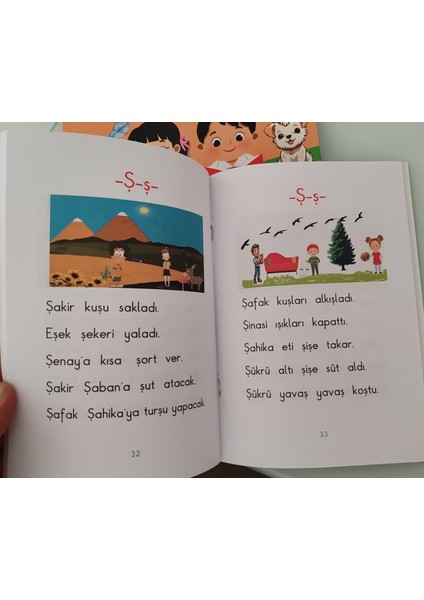 -Ş-ş-
Şakir kuşu sakladı.
Eşek şekeri yaladı.
Şenay'a kısa şort ver.
Şakir Şaban'a şut atacak.
Şafak Şahika'ya turşu yapacak.
32
-Ş-ş-
Şafak kuşları alkışladı.
Şinasi ışıkları kapattı.
Şahika eti şişe takar.
Şükrü altı şişe süt aldı.
Şükrü yavaş yavaş koştu.
33